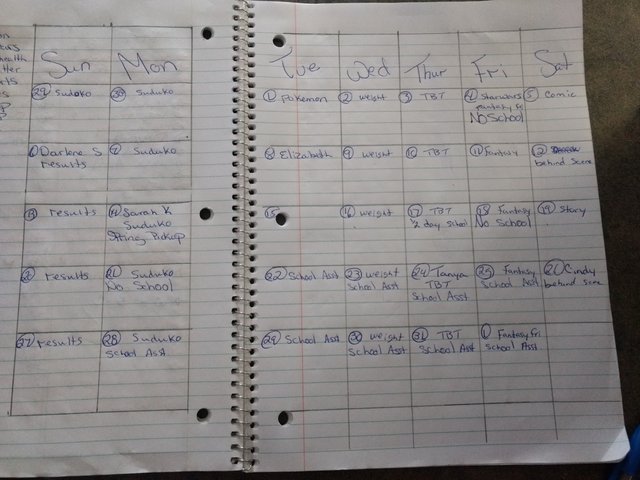 Sun Mon Tue Wed Thur Fri Sat
29 Suduko
30 Suduko
1 Pokemon
2 weight
3 TBT
4 Starwars
fantasy fri
No School
5 Comic
6 Darlene S
results
7 Suduko
8 Elizabeth
9 weight
10 TBT
11 Fantasy
12
behind scene
13 results
14 Sarah K
Suduko
String Pickup
15
16 weight
17 TBT
1/2 day school
18 Fantasy
No School
19 Story
20 results
21 Suduko
No School
22 School Asst
23 weight
School Asst
24 Tanya
TBT
School Asst
25 Fantasy
School Asst
26 Cindy
behind scene
27 results
28 Suduko
School Asst
29 School Asst
30 weight
School Asst
31 TBT
School Asst
1 Fantasy Fri
School Asst